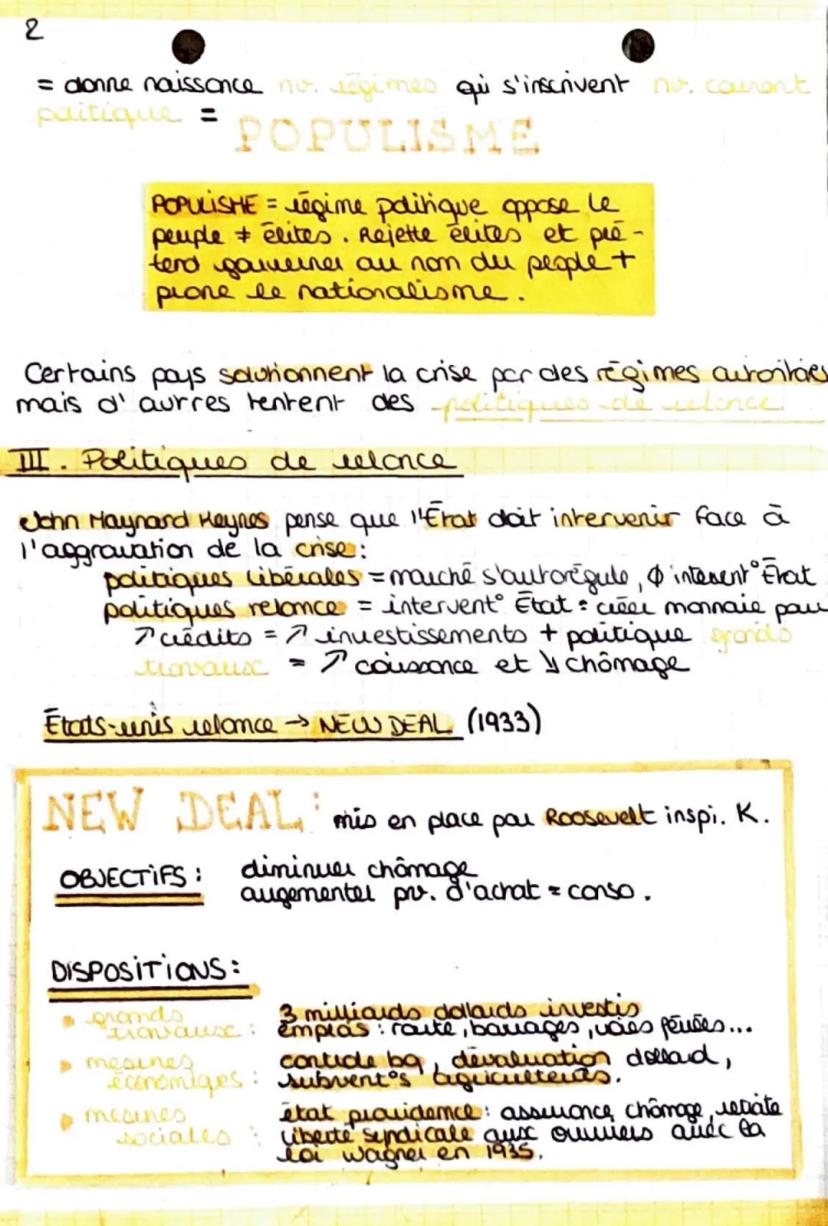 2
= donne naissance nv. régimes qui s'inscrivent nv. courant
politique =
POPULISME
POPULISME = régime politique oppose le
peuple ≠ élites. Rejette élites et pré-
tend gouverner au nom du people +
prone le nationalisme.
Certains pays solutionnent la crise par des régimes autoritaires
mais d'autres tentent des politiques de relance
III. Politiques de relance
John Maynard Keynes pense que l'État doit intervenir face à
l'aggravation de la crise:
politiques libérales = marché s'autorégule, ∅ intervent° État
politiques relance = intervent° État : créer monnaie pour
↗ crédits = ↗ investissements + politique grands
travaux = ↗ croissance et ↘ chômage
États-unis relance → NEW DEAL (1933)
NEW DEAL: mis en place par Roosevelt inspi. K.
OBJECTIFS: diminuer chômage
augmenter pv. d'achat = conso.
DISPOSITIONS:
grands 3 milliards dollards investis
travaux: emplois: route, barrages, voies ferrées...
mesures controle bq, dévaluation dollard,
économiques: subvent°s agriculteurs.
mesures état providence: assurance, chômage, retraite
sociales: liberté syndicale aux ouvriers avec la
loi Wagner en 1935.